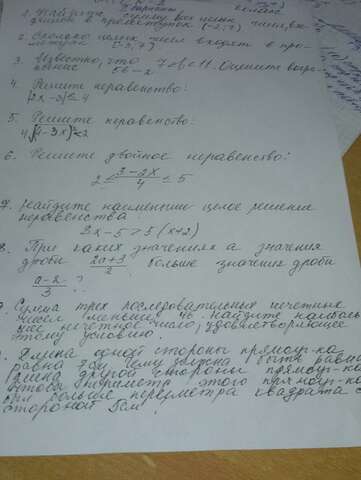 1. Найдите сумму всех целых чисел, вх
в промежуток
2. Сколько целых чисел входят в про-
межуток [-3; 7)
3. Известно, что 7<b<11. Оцените выра-
жение
4. Решите неравенство:
5. Решите неравенство:
6. Решите двойное неравенство:
2 ≤ 3-2x/4 ≤ 5
7. Найдите наименьшее целое решение
неравенства
3x-5>5(x+2)
8. При каких значениях а значения
дроби 2a+3/2 больше значения дроби
a-2/3 ?
9. Сумма трёх последовательных нечетных
чисел меньше 46. Найдите наиболь-
шее нечетное число, удовлетворяющее
этому условию.
Длина одной стороны прямоуг-ка
равна 7см. Чему должна быть равна
длина другой стороны прямоуг-ка
чтобы периметр этого прямоуг-ка
был больше периметра квадрата с
стороной 5см?